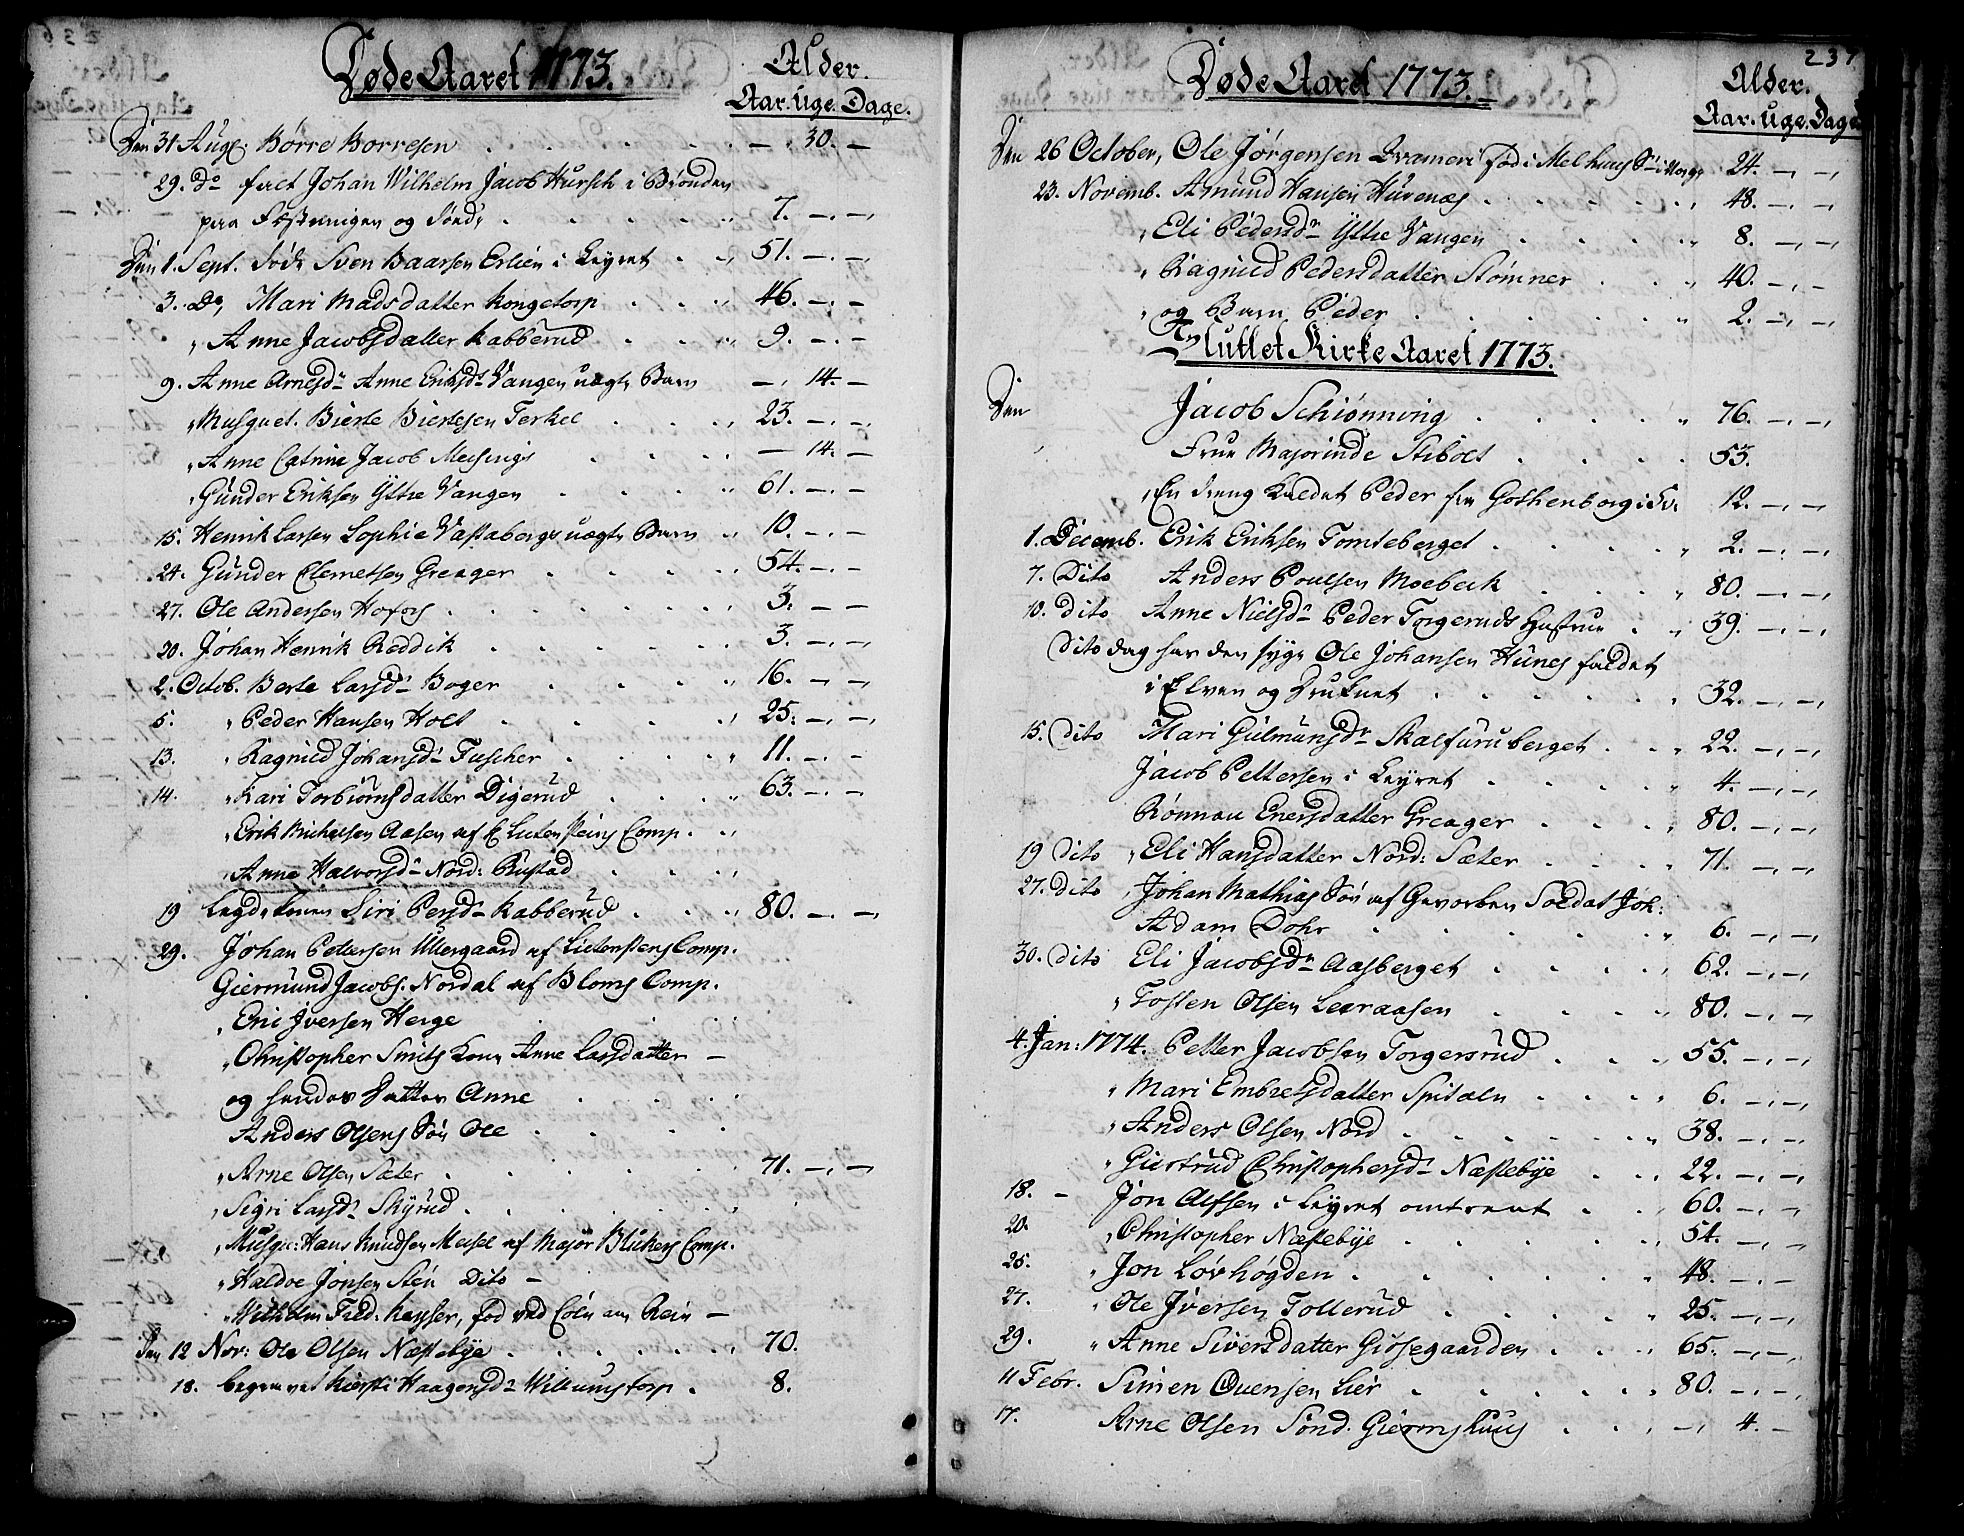 Døde Aaret 1773.
Alder.
Aar. Uge. Dage.
Den 31 Aug. Børre Borresen - 30. -
29. Do fact Johan Wilhelm Jacob Hursch i Brønden
paa Fæstningen og død, 7. - . -
Den 1. Sept. døde Sven Baarsen Erlien i Leyret 51. - . -
3. Do, Mari Madsdatter Kongetorp 46. - . -
" Anne Jacobsdatter Kabberud 9. - . -
9. Anne Arnesdr Anne Eriksdr Vangen uægte Barn - . 14. -
" Musquet. Bierte Biertesen Terkel 23. - . -
" Anne Catrine Jacob Meisings - 14. -
" Günder Eriksen Yttre Vangen 61. - . -
15. Henrik Larsen Sophie Vastabergs uægte Barn 10. - . -
24. Günder Clemetsen Greager 54. - . -
27. Ole Andersen Hofoss 3. - . -
20. Johan Henrik Reddik 3. - . -
2. Octob. Berte Larsdr Boger 16. - . -
5. " Peder Hansen Holt 25. - . -
13. " Ragnild Johansdr Fuscher 11. - . -
14. " Kari Torbiørnsdatter Digerud 63. - . -
" Erik Michelsen Aasen af Lutensteins Comp.
" Anne Halvorsdr Nord: Rustad
19 Legdekonen Siri Persdr Kabberud 80. - . -
29. Johan Pettersen Ullergaard af Lictenstens Comp.
Giermund Jacobs. Nordal af Bloms Comp.
" Eric Iversen Herge
" Christopher Smits Kone Anne Larsdatter -
og hendes Datter Anne
Anders Olsens Søn Ole
" Arne Olsen Sæter 71. - . -
" Sigri Larsdr Skyrud
" Musqu: Hans Knudsen Meisel af Major Blichers Comp.
" Haldoe Jonsen Sten Dito -
" Wilhelm Fred. Keyser, fød ved Cöln am Rein -
Den 12 Nov: Ole Olsen Næstebye 70.
18. begravet Kiersti Haagensdr Wilkumstorp 8.
237
Døde Aaret 1773.
Alder.
Aar. Uge. Dage
Den 26 October, Ole Jørgensen Brameri fød i Melhuus Sn i Norge 24. - . -
23. Novemb. Amund Hansen Huvenæs 48. - . -
" Eli Pedersdr Yttre Vangen 8. - . -
" Ragnild Pedersdatter Stømner 40. - . -
" og Barn Peder 2. - . -
An sluttet Kirke Aaret 1773.
Den Jacob Schiønning 76. - . -
Frue Majorinde Stibolt 53.
" En dreng kaldet Peder fra Gothenborg i Sv. 12. - . -
1. Decemb. Erik Eriksen Tomteberget 2. - . -
7. Dito Anders Poulsen Moebeck 80. - . -
10. dito Anne Nielsdr Peder Torgeruds Hustrue 39. - . -
Dito dag har den syge Ole Johansen Hünes faldet
i Elven og Druknet 32. - . -
15. dito Mari Gulmunsdr Skalfuruberget 22. - . -
Jacob Pettersen i Leyret 4. - . -
Rønnau Enersdatter Greager 80. - . -
19 dito " Eli Hansdatter Nord: Sæter 71. - . -
27. dito " Johan Mathias Søn af Gevorben Soldat Joh:
Adam Dohr 6. - . -
30. dito Eli Jacobsdr Aasberget 62. - . -
" Tosten Olsen Leeraasen 80. - . -
4. Jan: 1774. Petter Jacobsen Torgersrud 55. - . -
" Mari Embretsdatter Spitaln 6. - . -
" Anders Olsen Nord 38. - . -
" Giertrud Christophersdr Næstebye 22. - . -
18. - Jon Alfsen i Leyret omtrent 60. - . -
20. " Christopher Næstebye 54. - . -
25. " Jon Løvhøgden 48. - . -
27. " Ole Iversen Tollerud 25. - . -
29. " Anne Siversdatter Giøsegaarden 65. - . -
11 Febr. Simen Ouensen Lier 80. - . -
17. Arne Olsen Sønd. Giermshuus - . 4. -